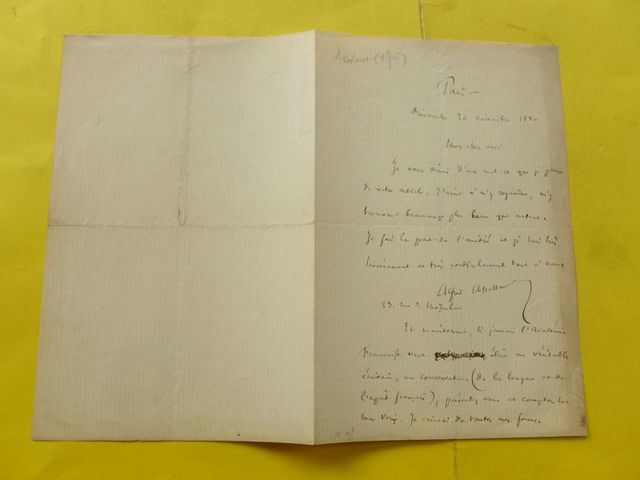 Assolant (Alfred)
Paris —
Dimanche 26 Décembre 1880
Mon cher ami
Je vous dirai d'un mot ce que je pense
de votre article. J'aime à m'y regarder, m'y
trouvant beaucoup plus beau que nature.
Je fais la part de l'amitié et je suis très
sincèrement et très cordialement tout à vous
Alfred Assollant
23, rue de
Et maintenant, si jamais l'Académie
Française veut élire un véritable
écrivain, un conservateur (de la langue et de
l'esprit français), présentez vous et comptez sur
ma voix. Je crierai de toutes mes forces.